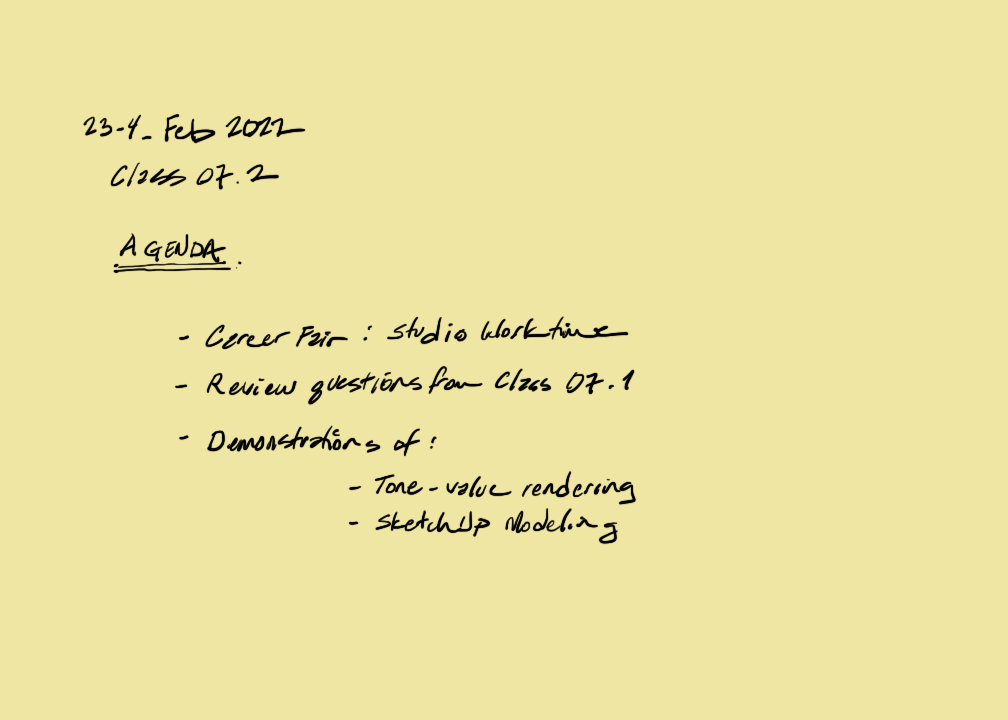 23-4_ Feb 2022
Class 07.2
AGENDA.
- Career Fair : Studio Worktime
- Review questions from Class 07.1
- Demonstrations of :
- Tone-value rendering
- SketchUp Modeling